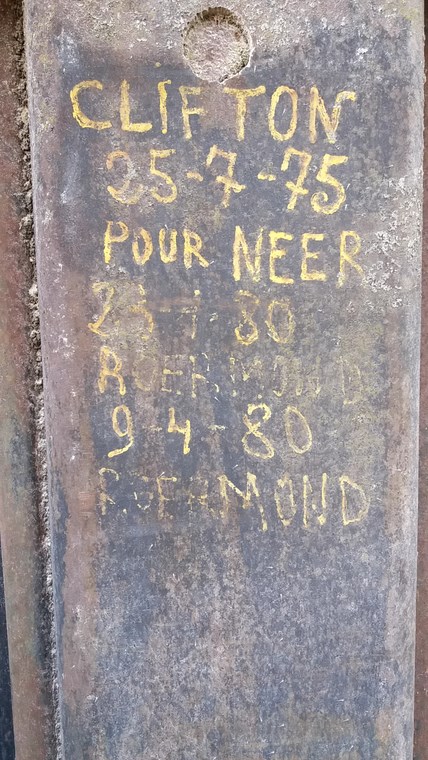 CLIFTON
25-7-75
POUR NEER
23-7-80
ROERMOND
9-4-80
ROERMOND